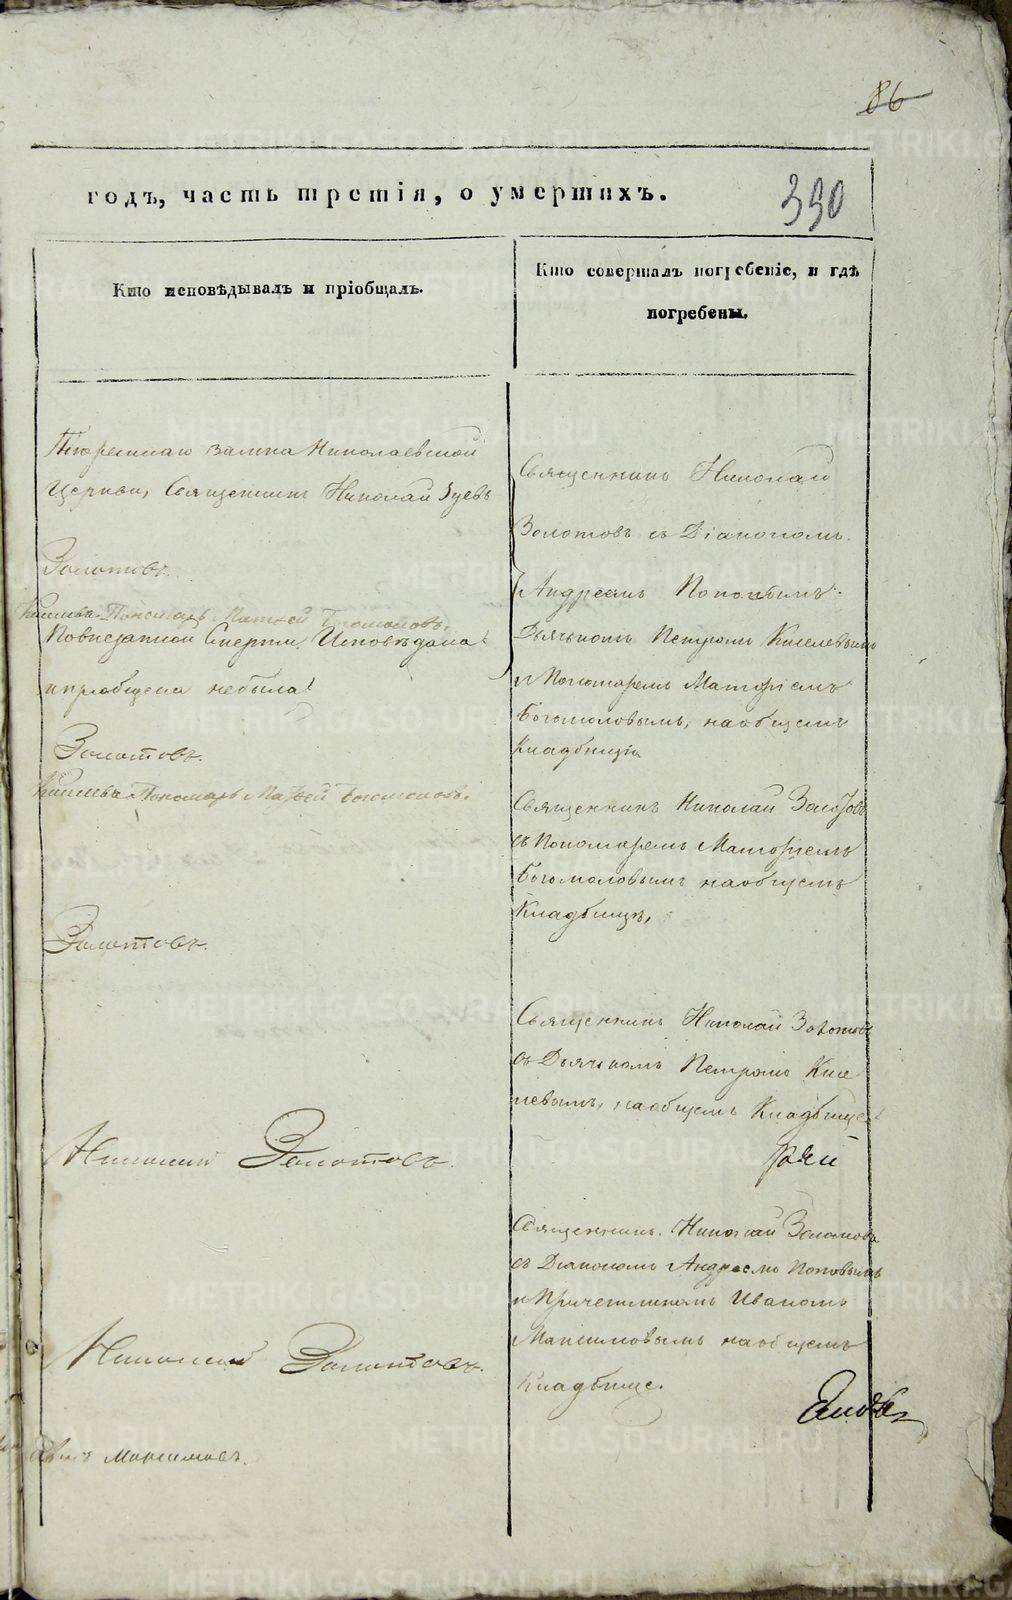 86
годъ, часть третія, о умершихъ.
390
Кто исповѣдывалъ и пріобщалъ.
Кто совершалъ погребеніе, и гдѣ
погребены.
Тюремнаго замка Николаевской
Церкви, Священникъ Николай Зуевъ
Золотовъ.
Пономарь Матвей Богомоловъ.
Скерти, Исповѣдана
и приобщена небыла
Золотовъ.
Пономарь Матфей Богомоловъ.
Золотовъ.
Николай Золотовъ.
Николай Золотовъ.
Максимовъ.
Священникъ Николай
Золотовъ съ Діакономъ
Андреемъ Поповымъ
Дьячькомъ Петромъ Киселевымъ
и Пономаремъ Матфіемъ
Богомоловымъ, наобщемъ
Кладбищѣ
Священникъ Николай Золотовъ
съ Пономаремъ Матфіемъ
Богомоловымъ наобщемъ
Кладбищѣ,
Священникъ Николай Золотовъ
съ Дьячькомъ Петромъ Кисе
левымъ, наобщемъ Кладбище
Священникъ Николай Золотовъ
съ Діакономъ Андреемъ Поповымъ
и Причетникомъ Иваномъ
Максимовымъ наобщемъ
Кладбище.
METRIKI.GASO-URAL.RU